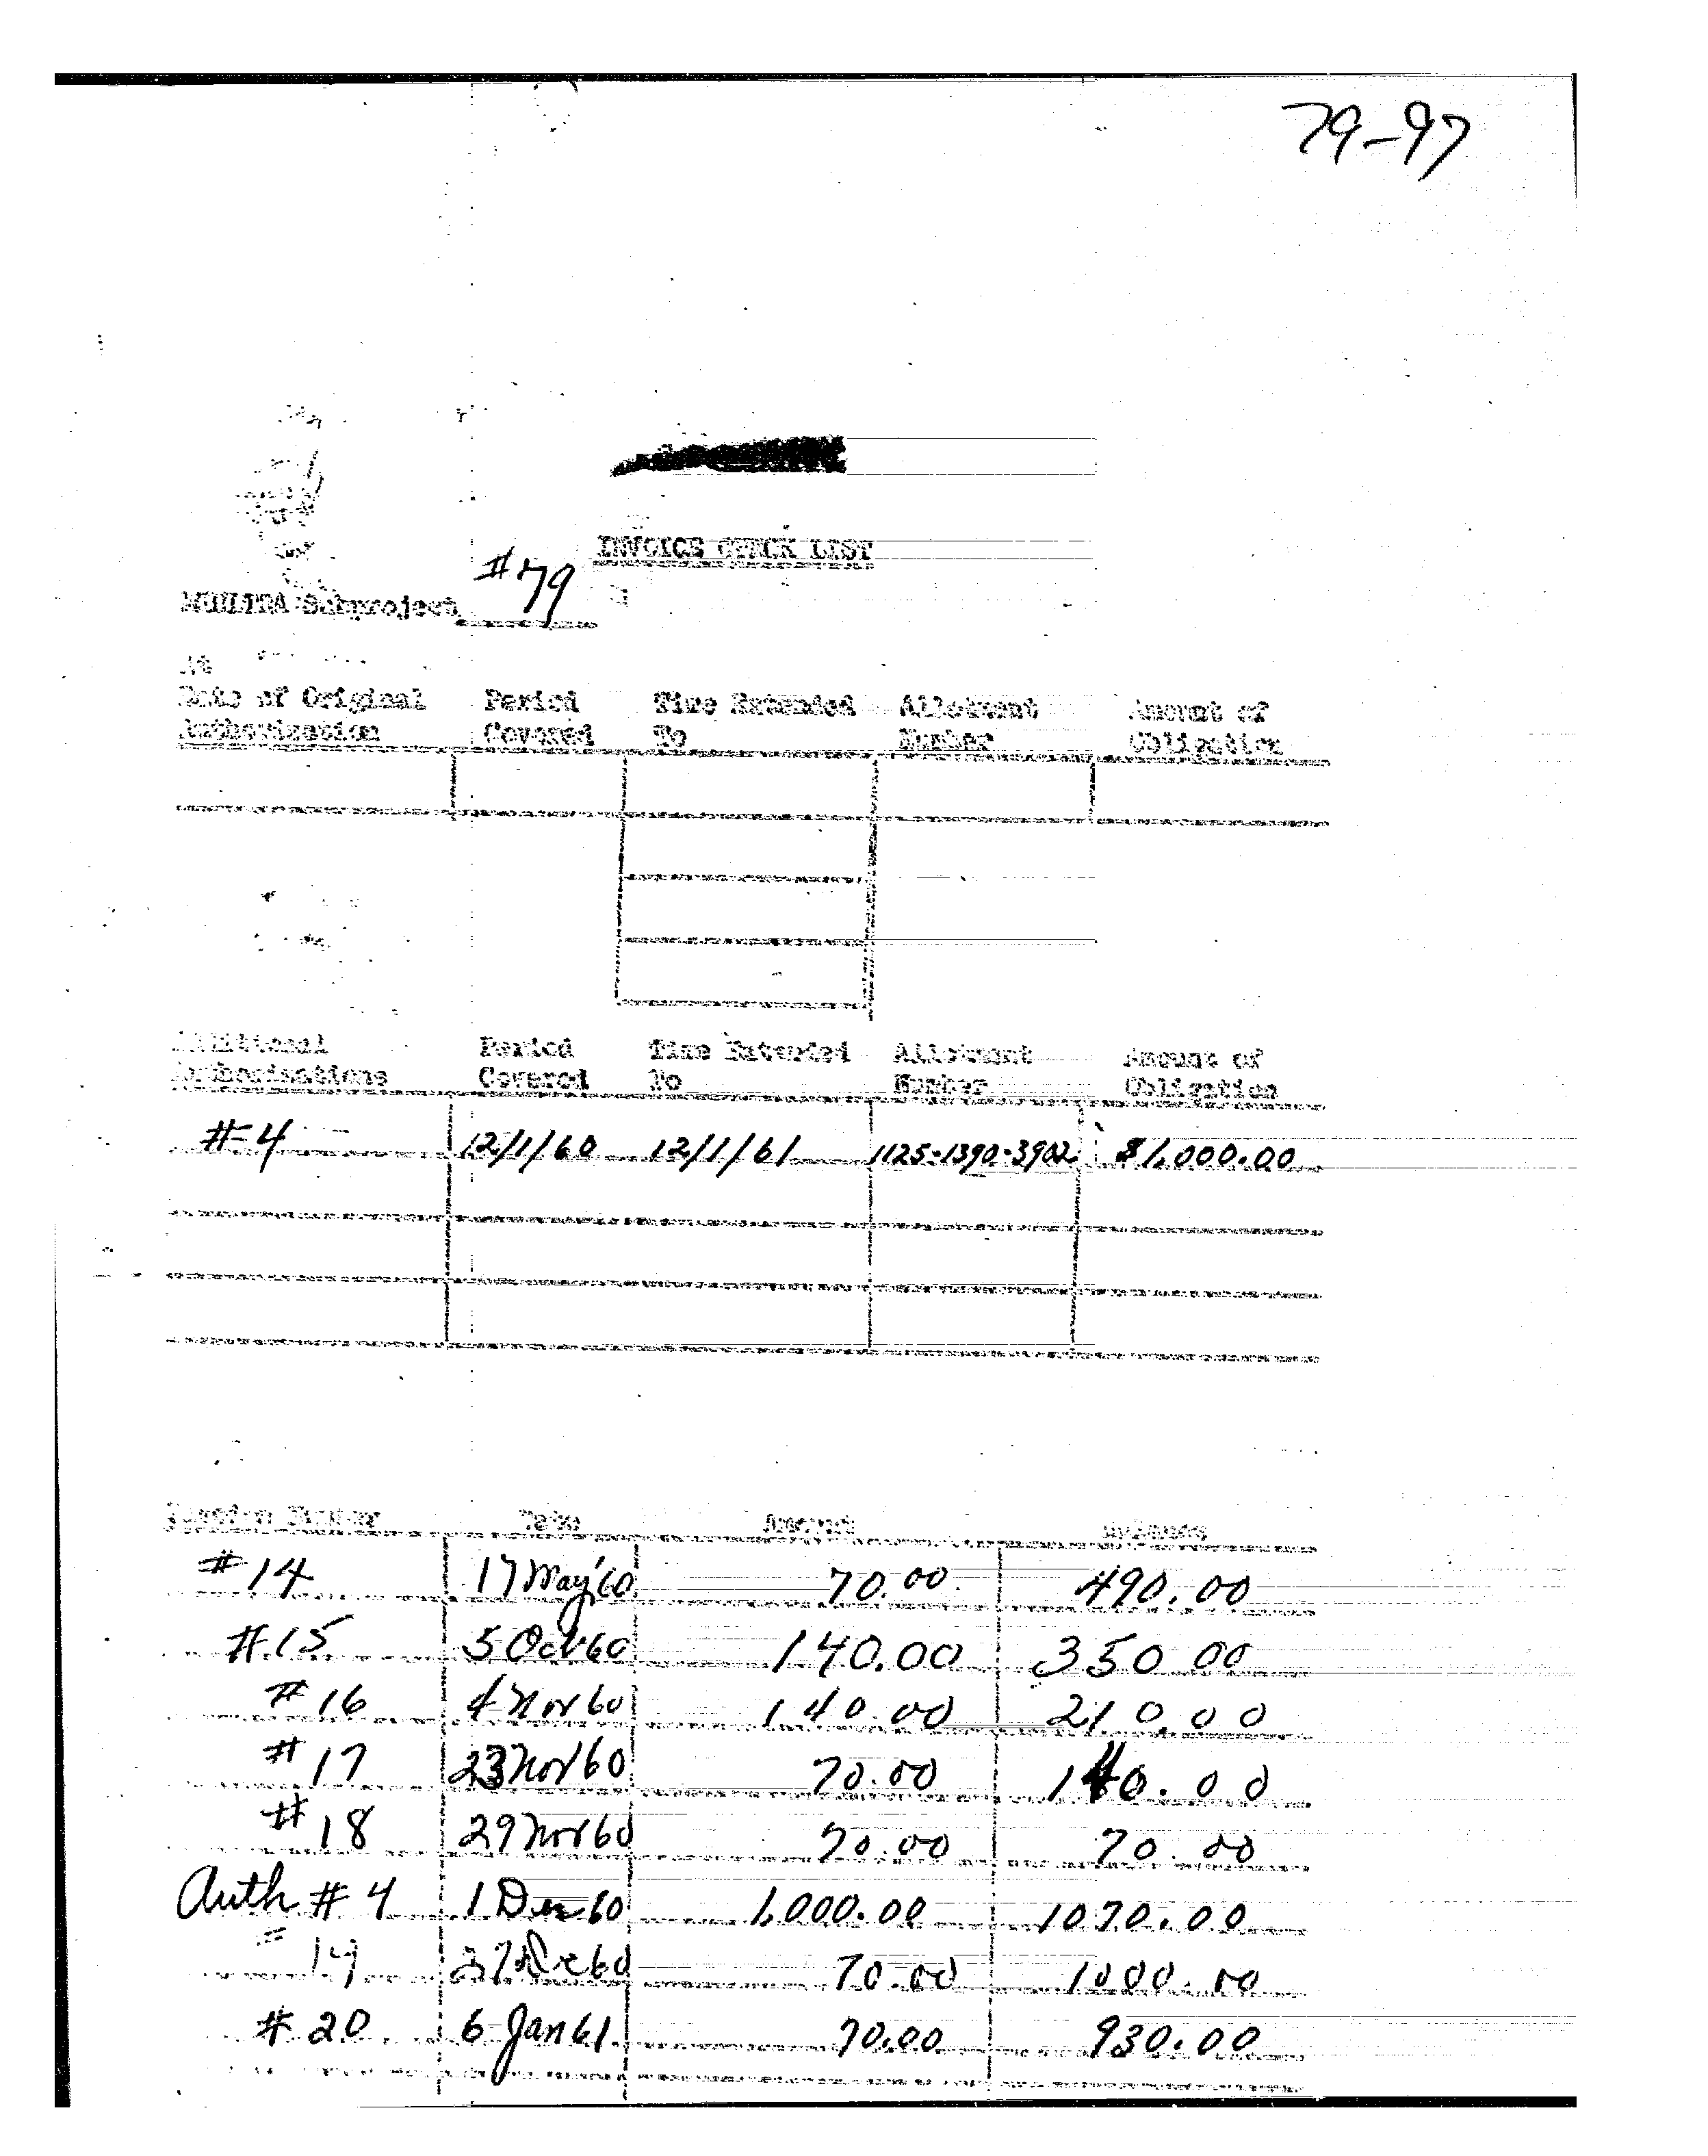 79-97
INVOICE CHECK LIST
MKULTRA Subproject #79
Date of Original Authorization Period Covered Time Extended To Allotment Number Amount of Obligation
Additional Authorizations Period Covered Time Extended To Allotment Number Amount of Obligation
#4 12/1/60 12/1/61 1125-1390-3902 $1,000.00
Invoice Number Date Amount Balance
#14 17 May '60 70.00 490.00
#15 5 Oct 60 140.00 350 00
#16 4 Nov 60 140.00 210.00
#17 23 Nov 60 70.00 140.00
#18 29 Nov 60 70.00 70.00
Auth #4 1 Dec 60 1,000.00 1070.00
19 27 Dec 60 70.00 1000.00
#20 6 Jan 61 70.00 930.00